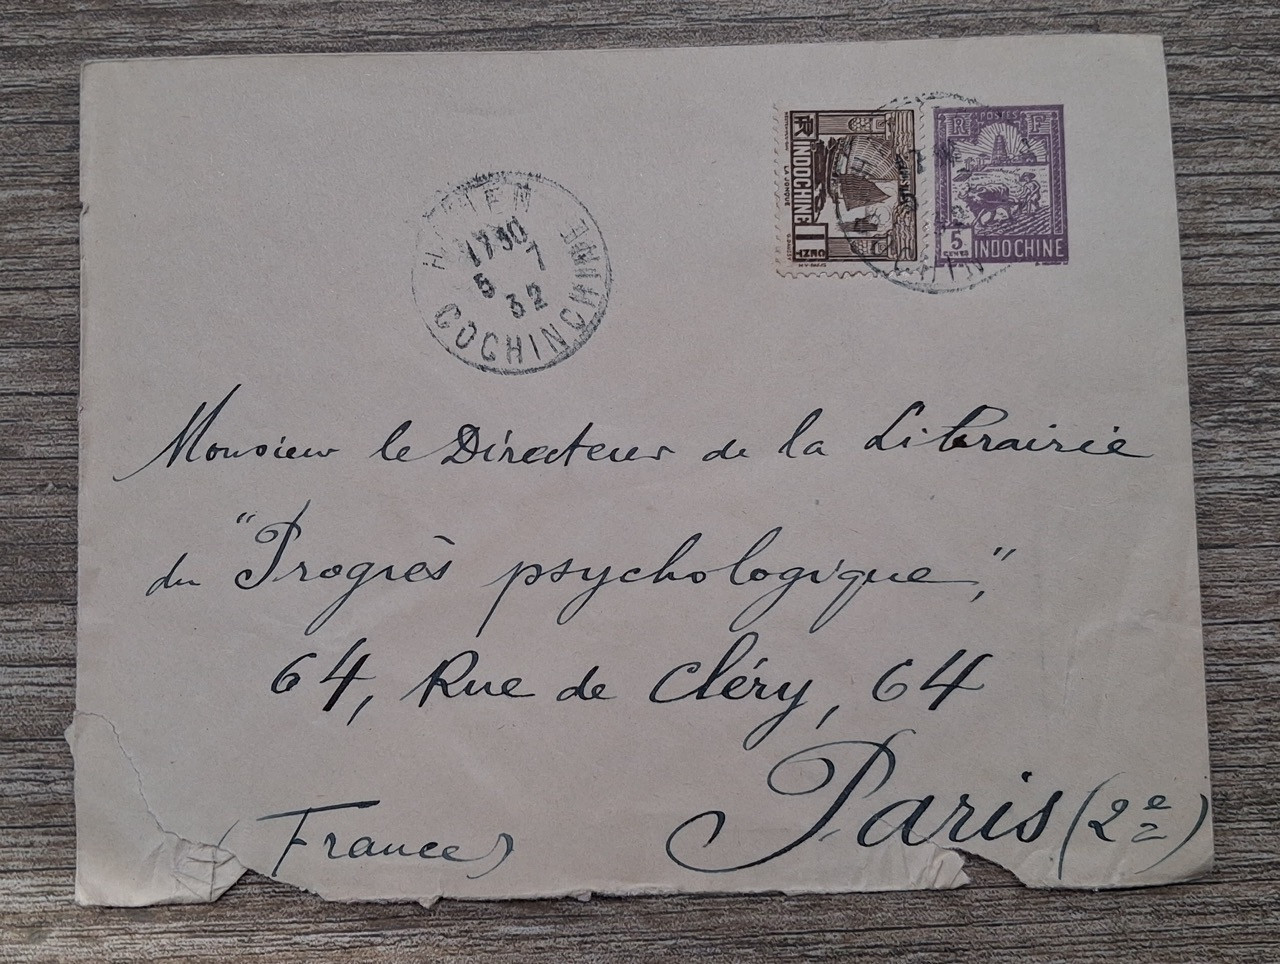 RF
INDOCHINE
1
CENT
LA JONQUE
POSTES
R F
5
CENTS
INDOCHINE
HATIEN
1730
5 7
32
COCHINCHINE
Monsieur le Directeur de la Librairie
du "Progrès psychologique",
64, Rue de Cléry, 64
Paris (2e)
(France)